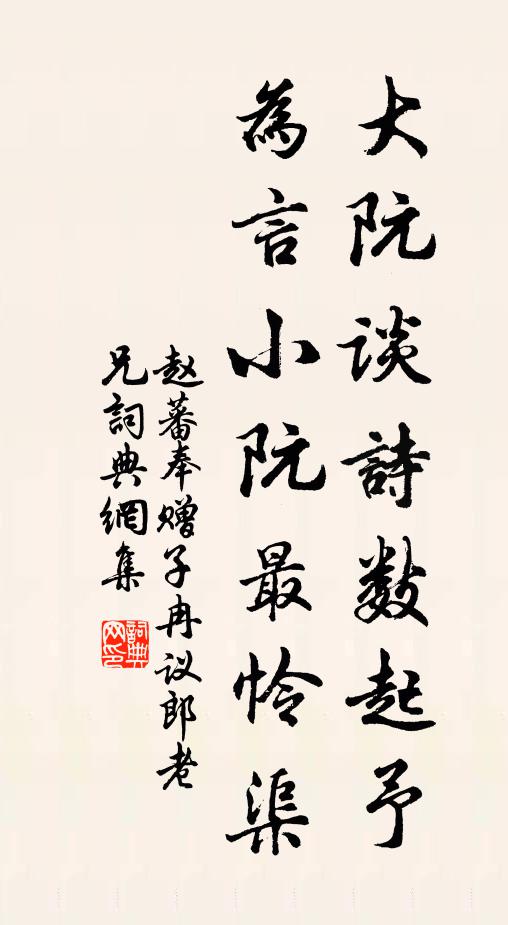 大阮谈詩数起予
為言小阮最怜渠
赵蕃奉赠子冉议郎老
兄詞典網集
詞典网印